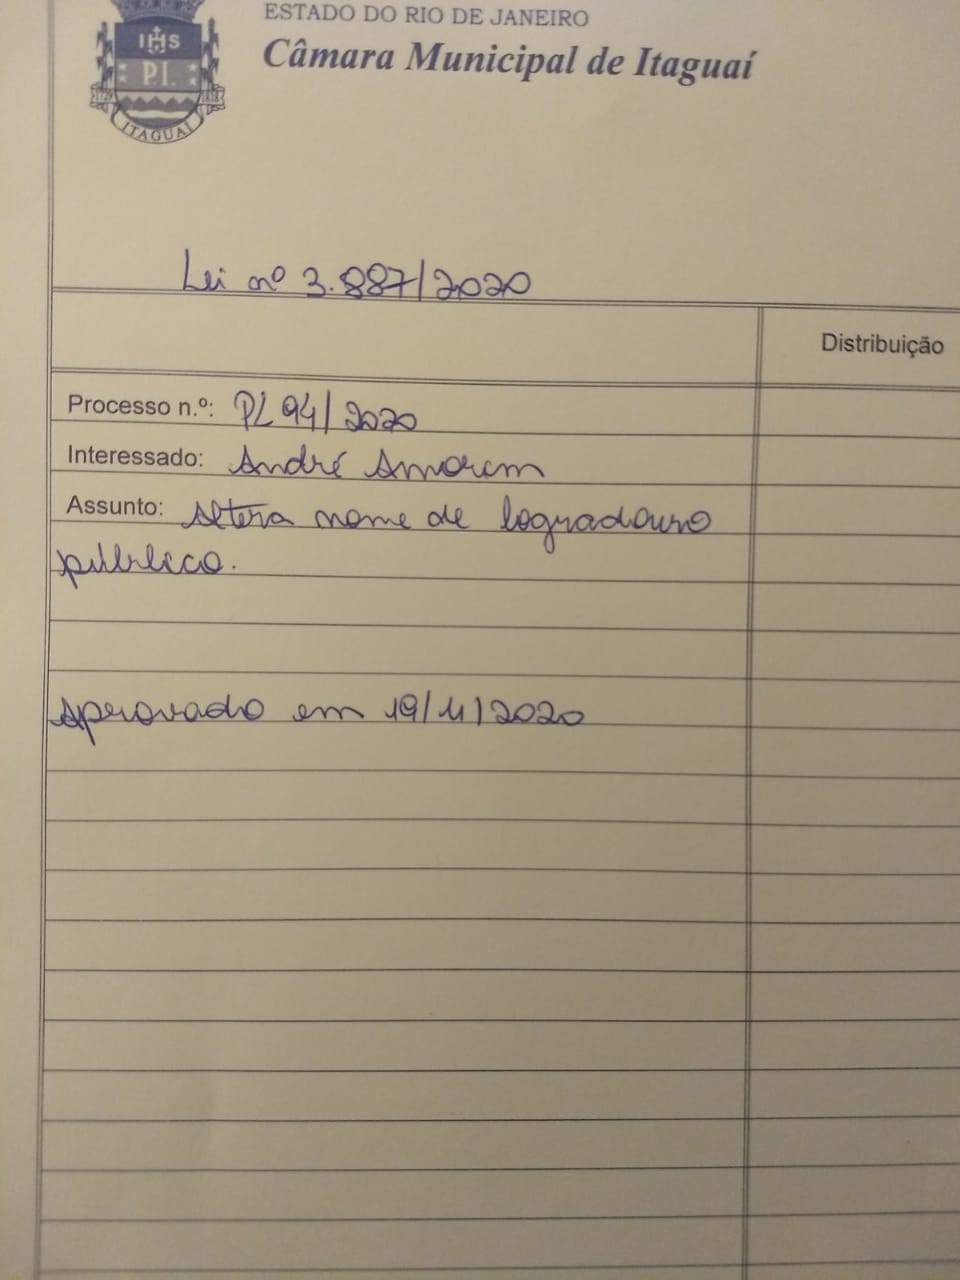 ESTADO DO RIO DE JANEIRO
Câmara Municipal de Itaguaí
IHS
P.I.
1729 1818
ITAGUAÍ
Lei nº 3.887/2020
Distribuição
Processo n.º: PL 94/2020
Interessado: André Amorim
Assunto: Altera nome de logradouro
público.
Aprovado em 19/11/2020